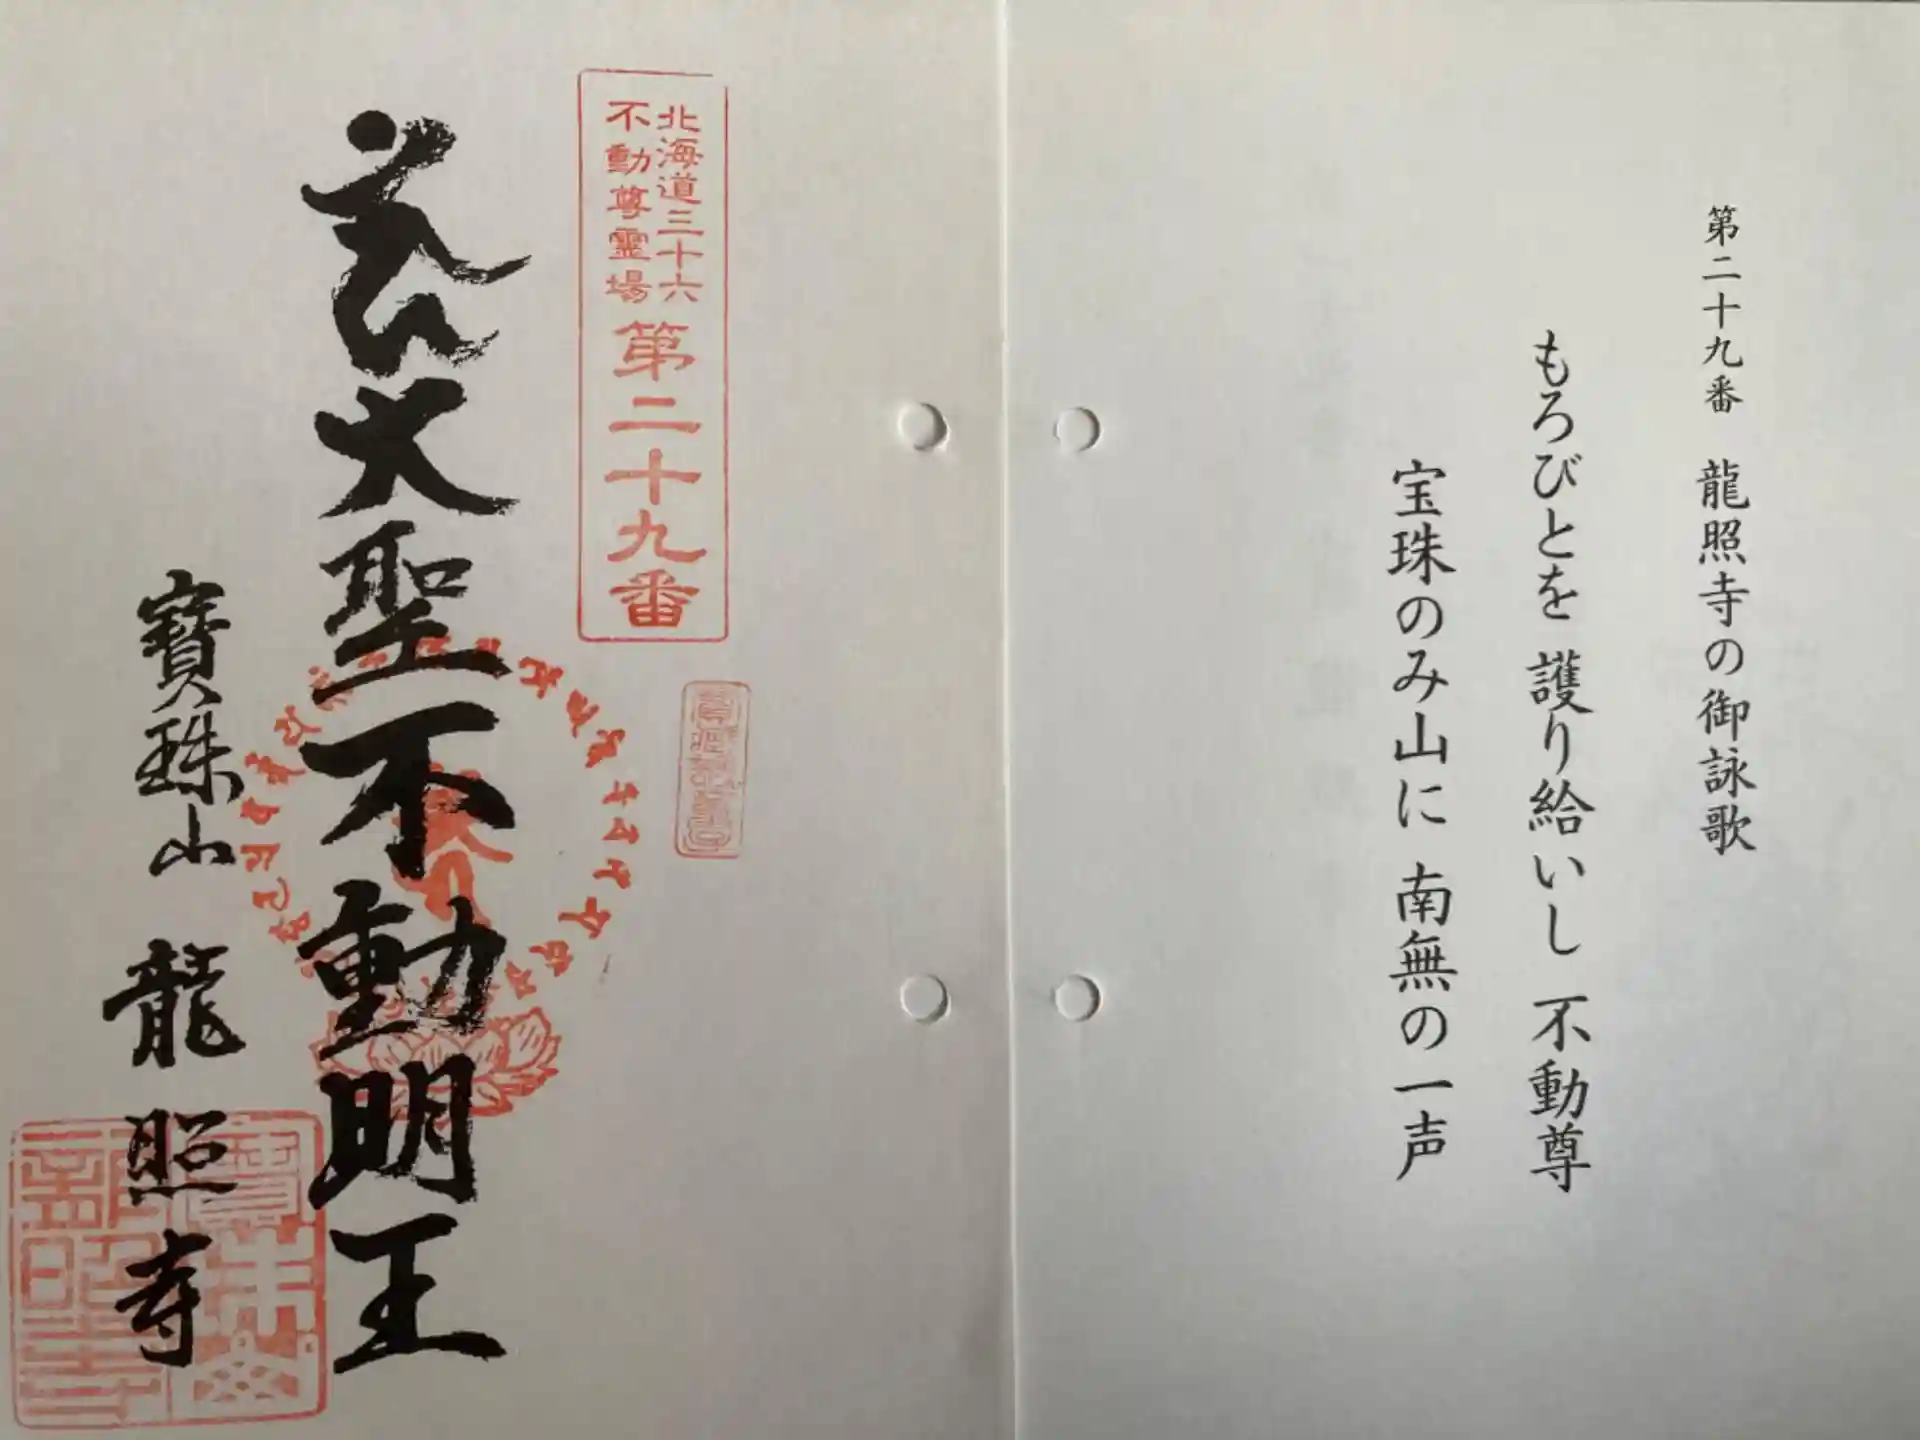 第二十九番 龍照寺の御詠歌
もろびとを 護り給いし 不動尊
宝珠のみ山に 南無の一声
北海道三十六
不動尊霊場
第二十九番
大聖不動明王
寶珠山 龍照寺